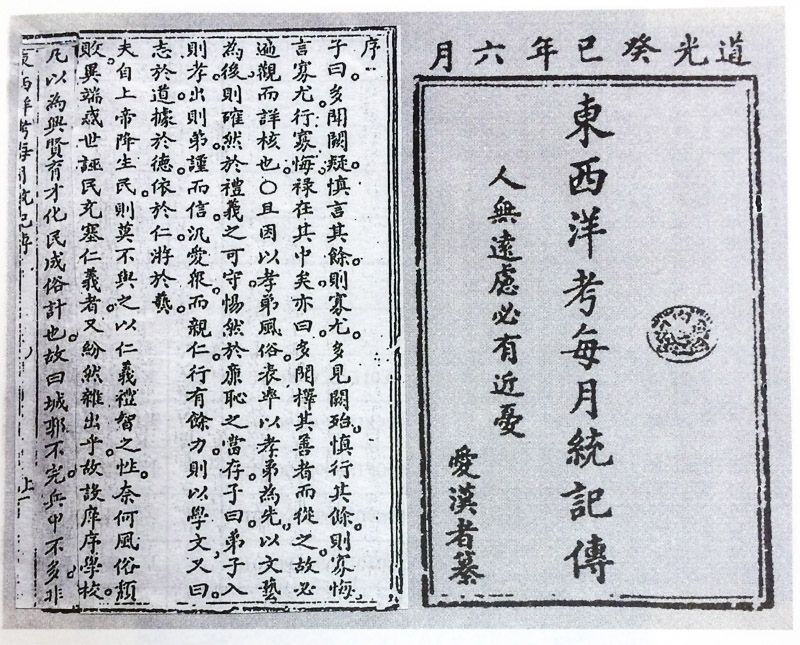 道光癸巳年六月
東西洋考每月統記傳
人無遠慮必有近憂
愛漢者纂
序
子曰。多聞闕疑。慎言其餘。則寡尤。多見闕殆。慎行其餘。則寡悔。
言寡尤。行寡悔。祿在其中矣。亦曰。多聞擇其善者而從之。故必
遍觀而詳核也。○且因以孝弟風俗。表率以孝弟為先。以文藝
為後。則確然於禮義之可守。惕然於廉恥之當存。子曰。弟子入
則孝。出則弟。謹而信。汎愛眾。而親仁。行有餘力。則以學文。又曰。
志於道。據於德。依於仁。游於藝。
夫自上帝降生民。則莫不與之以仁義禮智之性。奈何風俗頹
敗。異端惑世誣民。充塞仁義者。又紛然雜出乎。故設庠序學校。
凡以為興賢育才。化民成俗計也。故曰。城郭不完。兵甲不多。非
東西洋考每月統記傳